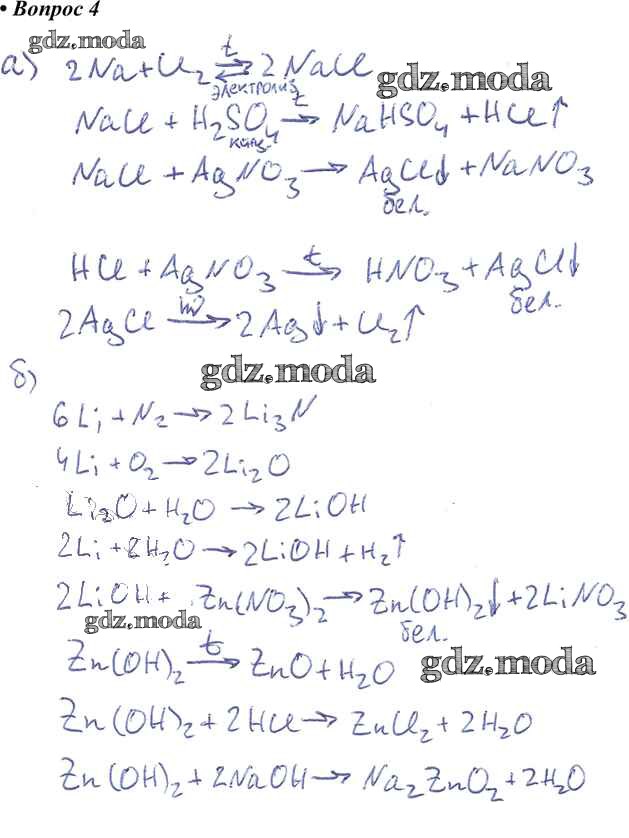 • Вопрос 4
gdz.moda
а) 2Na + Cl₂ ⇌ 2NaCl
t
электролиз
gdz.moda
NaCl + H₂SO₄ →t NaHSO₄ + HCl↑
конц.
NaCl + AgNO₃ → AgCl↓ + NaNO₃
бел.
HCl + AgNO₃ →t HNO₃ + AgCl↓
бел.
2AgCl →hν 2Ag↓ + Cl₂↑
б)
gdz.moda
6Li + N₂ → 2Li₃N
4Li + O₂ → 2Li₂O
Li₂O + H₂O → 2LiOH
2Li + 2H₂O → 2LiOH + H₂↑
2LiOH + Zn(NO₃)₂ → Zn(OH)₂↓ + 2LiNO₃
gdz.moda
бел.
Zn(OH)₂ →t ZnO + H₂O
gdz.moda
Zn(OH)₂ + 2HCl → ZnCl₂ + 2H₂O
Zn(OH)₂ + 2NaOH → Na₂ZnO₂ + 2H₂O